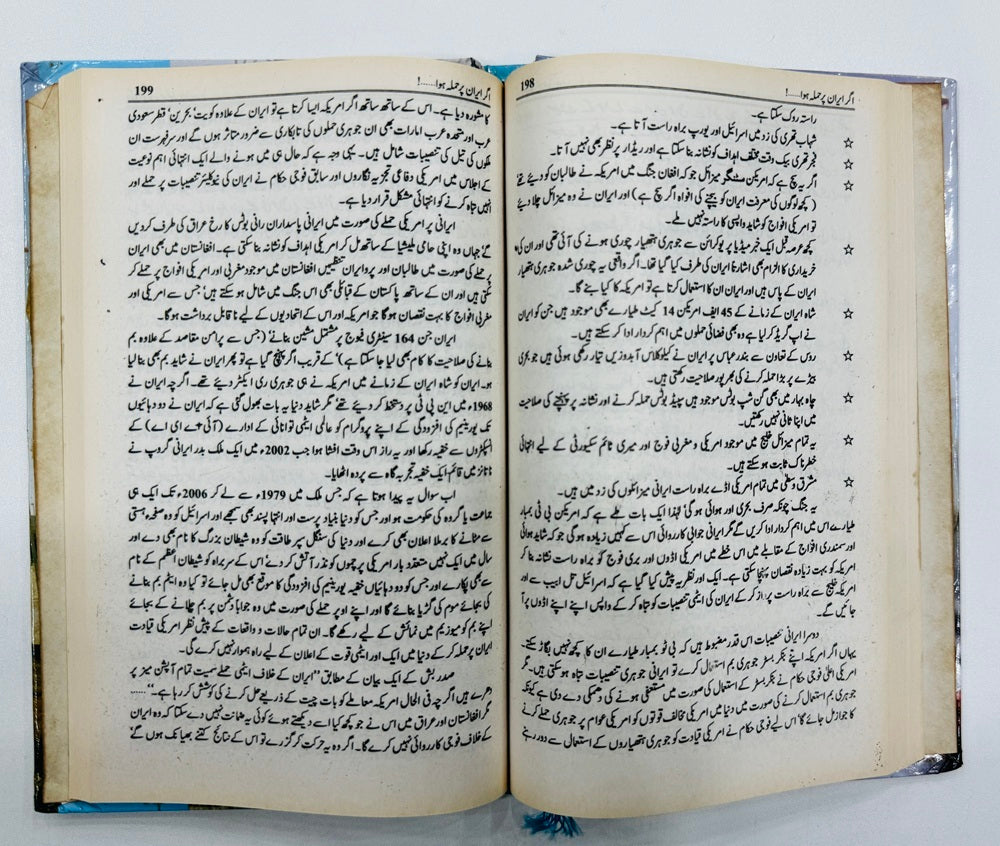 198 اگر ایران پر حملہ ہوا.....!
راستہ روک سکتا ہے۔
☆ شہاب تھری کی زد میں اسرائیل اور یورپ براہ راست آتا ہے۔
☆ فجر تھری بیک وقت مختلف اہداف کو نشانہ بنا سکتا ہے اور ریڈار پر نظر بھی نہیں آتا۔
☆ اگر یہ سچ ہے کہ امریکن سٹنگر میزائل جو کہ افغان جنگ میں امریکہ نے طالبان کو دیئے تھے
( کچھ لوگوں کی معرفت ایران کو بیچنے کی افواہ اگر سچ ہے ) اور ایران نے وہ میزائل چلا دیئے
تو امریکی افواج کو شاید واپسی کا راستہ نہیں ملے۔
☆ کچھ عرصہ قبل ایک خبر میڈیا پر یوکرائن سے جوہری ہتھیار چوری ہونے کی آئی تھی اور ان کی
خریداری کا الزام بھی اشارتاً ایران کی طرف کیا گیا تھا۔ اگر واقعی یہ چوری شدہ جوہری ہتھیار
ایران کے پاس ہیں اور ایران ان کا استعمال کرتا ہے تو امریکہ کا کیا بنے گا۔
☆ شاہ ایران کے زمانے کے 45 ایف امریکن 14 کیٹ طیارے بھی موجود ہیں جن کو ایران
نے اپ گریڈ کر لیا ہے وہ بھی فضائی حملوں میں اہم کردار ادا کر سکتے ہیں۔
☆ روس کے تعاون سے بندر عباس پر ایران نے کیلوکلاس آبدوزیں تیار رکھی ہوئی ہیں جو بحری
بیڑے پر بڑا حملہ کرنے کی بھرپور صلاحیت رکھتی ہیں۔
☆ چاہ بہار میں بھی گن شپ بوٹس موجود ہیں سپیڈ بوٹس حملہ کرنے اور نشانہ پر پہنچنے کی صلاحیت
میں اپنا ثانی نہیں رکھتیں۔
☆ یہ تمام میزائل خلیج میں موجود امریکی و مغربی فوج اور میری ٹائم سکیورٹی کے لیے انتہائی
خطرناک ثابت ہو سکتے ہیں۔
☆ مشرق وسطٰی میں تمام امریکی اڈے براہ راست ایرانی میزائلوں کی زد میں ہیں۔
یہ جنگ چونکہ صرف بحری اور ہوائی ہو گی‘ لہٰذا ایک بات طے ہے کہ امریکن بی ٹی بمبار
طیارے اس میں اہم کردار ادا کریں گے مگر ایرانی جوابی کارروائی اس سے کہیں زیادہ ہو گی جو کہ شاید ہوائی
اور سمندری افواج کے مقابلے میں اس خطے میں امریکی اڈوں اور بری فوج کو براہ راست نشانہ بنا کر
امریکہ کو بہت زیادہ نقصان پہنچا سکتی ہے۔ ایک اور نظریہ پیش کیا گیا ہے کہ اسرائیل تل ابیب سے اور
امریکہ خلیج سے براہ راست پرواز کر کے ایران کی ایٹمی تنصیبات کو تباہ کر کے واپس اپنے اپنے اڈوں پر آ
جائیں گے۔
دوسرا ایرانی تنصیبات اس قدر مضبوط ہیں کہ بی ٹو بمبار طیارے ان کا کچھ نہیں بگاڑ سکتے۔
یہاں اگر امریکہ اپنے بنکر بسٹر جوہری بم استعمال کرے تو ایرانی جوہری تنصیبات تباہ ہو سکتی ہیں۔ مگر
امریکی اعلیٰ فوجی حکام نے بنکر بسٹر کے استعمال کی صورت میں مستعفی ہونے کی دھمکی دے دی ہے کیونکہ
جوہری بم استعمال کرنے کی صورت میں دنیا میں امریکہ مخالف قوتوں کو امریکی عوام پر جوہری حملے کرنے
کا جواز مل جائے گا‘ اس لیے فوجی حکام نے امریکی قیادت کو جوہری ہتھیاروں کے استعمال سے دور رہنے
199 اگر ایران پر حملہ ہوا.....!
کا مشورہ دیا ہے۔ اس کے ساتھ ساتھ اگر امریکہ ایسا کرتا ہے تو ایران کے علاوہ کویت‘ بحرین‘ قطر سعودی
عرب اور متحدہ عرب امارات بھی ان جوہری حملوں کی تابکاری سے ضرور متاثر ہوں گے اور سرفہرست ان
ملکوں کی تیل کی تنصیبات شامل ہیں۔ یہی وجہ ہے کہ حال ہی میں ہونے والے ایک انتہائی اہم نوعیت
کے اجلاس میں امریکی دفاعی تجزیہ نگاروں اور سابق فوجی حکام نے ایران کی نیوکلیئر تنصیبات پر حملے اور
انہیں تباہ کرنے کو انتہائی مشکل قرار دیا ہے۔
ایرانی پر امریکی حملے کی صورت میں ایرانی پاسداران رانی بوٹس کا رخ عراق کی طرف کر دیں
گے‘ جہاں وہ اپنی حامی ملیشیا کے ساتھ مل کر امریکی اہداف کو نشانہ بنا سکتی ہے۔ افغانستان میں بھی ایران
پر حملے کی صورت میں طالبان اور پرو ایران تنظیمیں افغانستان میں موجود مغربی اور امریکی افواج پر حملے کر
سکتی ہیں اور ان کے ساتھ پاکستان کے قبائلی بھی اس جنگ میں شامل ہو سکتے ہیں‘ جس سے امریکی اور
مغربی افواج کا بہت نقصان ہو گا جو امریکہ اور اس کے اتحادیوں کے لیے نا قابل برداشت ہو گا۔
ایران جن 164 سینٹری فیوج پر مشتمل مشین بنانے ( جس سے پرامن مقاصد کے علاوہ بم
بنانے کی صلاحیت کا کام بھی لیا جا سکتا ہے )‘ کے قریب اگر پہنچ گیا ہے تو پھر ایران نے شاید بم بھی بنا لیا
ہو۔ ایران کو شاہ ایران کے زمانے میں امریکہ نے ہی جوہری ری ایکٹر دیئے تھے۔ اگرچہ ایران نے
1968ء میں این پی ٹی پر دستخط کر دیئے تھے‘ مگر شاید دنیا یہ بات بھول گئی ہے کہ ایران نے دو دہائیوں
تک یورینیم کی افزودگی کے اپنے پروگرام کو عالمی ایٹمی توانائی کے ادارے (آئی+اے ای اے) کے
انسپکٹروں سے خفیہ رکھا اور یہ راز اس وقت افشا ہوا جب 2002ء میں ایک ملک بدر ایرانی گروپ نے
ناتانز میں قائم ایک خفیہ تجربہ گاہ سے پردہ اٹھایا۔
اب سوال یہ پیدا ہوتا ہے کہ جس ملک میں 1979ء سے لے کر 2006ء تک ایک ہی
جماعت یا گروہ کی حکومت ہو اور جس کو دنیا بنیاد پرست اور انتہا پسند بھی سمجھے اور اسرائیل کو وہ صفحہ ہستی
سے مٹانے کا برملا اعلان بھی کرے اور دنیا کی سنگل سپر طاقت کو وہ شیطان بزرگ کا نام بھی دے اور
سال میں ایک نہیں متعدد بار امریکی پرچموں کو نذر آتش کر دے‘ اس کے سربراہ کو شیطان اعظم کے نام
سے بھی پکارے اور جس کو دو دہائیاں خفیہ یورینیم کی افزودگی کا موقع بھی مل جائے تو کیا وہ ایٹم بم بنانے
کی بجائے موم کی گڑیا بنائے گا اور اپنے اوپر حملے کی صورت میں وہ جواباً دشمن پر بم چلانے کے بجائے
اپنے بم کو میوزیم میں نمائش کے لیے رکھے گا۔ ان تمام حالات و واقعات کے پیش نظر امریکی قیادت
ایران پر حملہ کر کے دنیا میں ایک اور ایٹمی قوت کے اعلان کے لیے راہ ہموار نہیں کرے گی۔
صدر بش کے ایک بیان کے مطابق ’’ایران کے خلاف ایٹمی حملے سمیت تمام آپشن میز پر
دھرے ہیں اگرچہ فی الحال امریکہ معاملے کو بات چیت کے ذریعے حل کرنے کی کوشش کر رہا ہے۔‘‘......
مگر افغانستان اور عراق میں اس نے جو کچھ کیا اسے دیکھتے ہوئے کوئی یہ ضمانت نہیں دے سکتا کہ وہ ایران
کے خلاف فوجی کارروائی نہیں کرے گا۔ اگر وہ یہ حرکت کر گزرے تو اس کے نتائج کتنے بھیانک ہوں گے‘